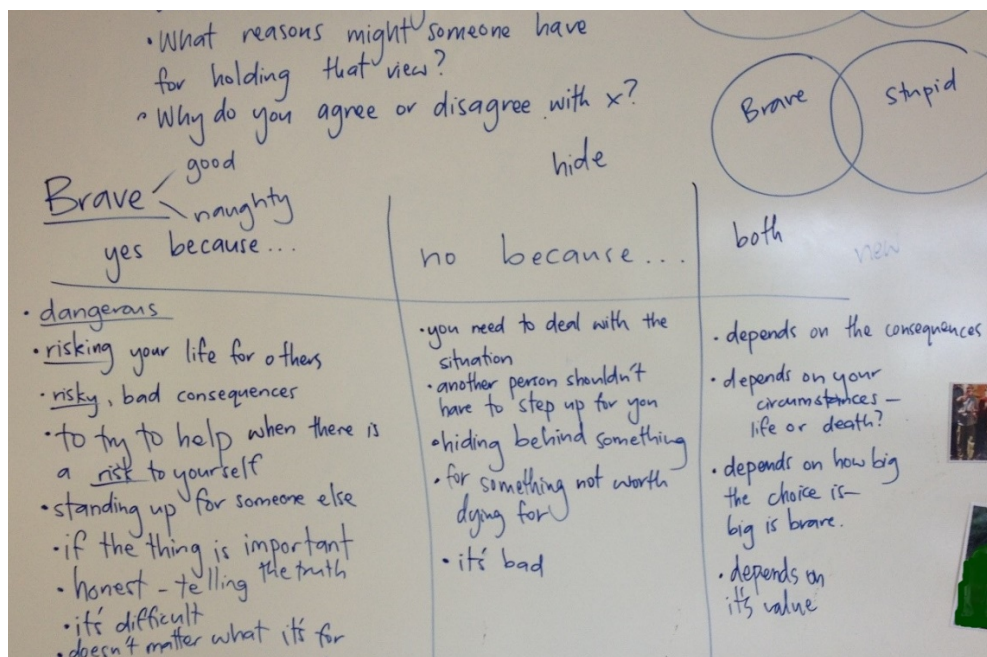 • What reasons might someone have
for holding that view?
• Why do you agree or disagree with x?
Brave
Stupid
hide
good
Brave
naughty
yes because...
no because...
both
new
• dangerous
• risking your life for others
• risky, bad consequences
• to try to help when there is
a risk to yourself
• standing up for someone else
• if the thing is important
• honest - telling the truth
• it's difficult
• doesn't matter what it's for
• you need to deal with the
situation
• another person shouldn't
have to step up for you
• hiding behind something
• for something not worth
dying for
• it's bad
• depends on the consequences
• depends on your
circumstances -
life or death?
• depends on how big
the choice is -
big is brave.
• depends on
it's value